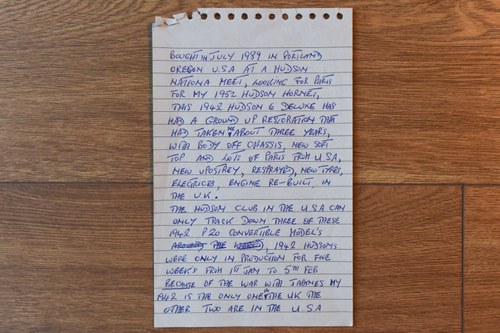 BOUGHT IN JULY 1989 IN PORTLAND
OREGON U.S.A AT A HUDSON
NATIONA MEET, LOOKING FOR PARTS
FOR MY 1952 HUDSON HORNET,
THIS 1942 HUDSON 6 DELUXE HAS
HAD A GROUND UP RESTORATION THAT
HAD TAKEN ME ABOUT THREE YEARS,
WITH BODY OFF CHASSIS, NEW SOFT
TOP AND LOTS OF PARTS FROM U.S.A,
NEW UPOSTREY, RESPRAYED, NEW TYRES,
ELECTRICES, ENGINE RE-BUILT, IN
THE U.K.
THE HUDSON CLUB IN THE U.S.A CAN
ONLY TRACK DOWN THREE OF THESE
1942 P20 CONVERTIBLE MODEL'S
AROUND THE WORLD, 1942 HUDSONS
WERE ONLY IN PRODUCTION FOR FIVE
WEEK'S FROM 1ST JAN TO 5TH FEB
BECAUSE OF THE WAR WITH JAPANES MY
P20 IS THE ONLY ONE IN THE UK THE
OTHER TWO ARE IN THE U.S.A